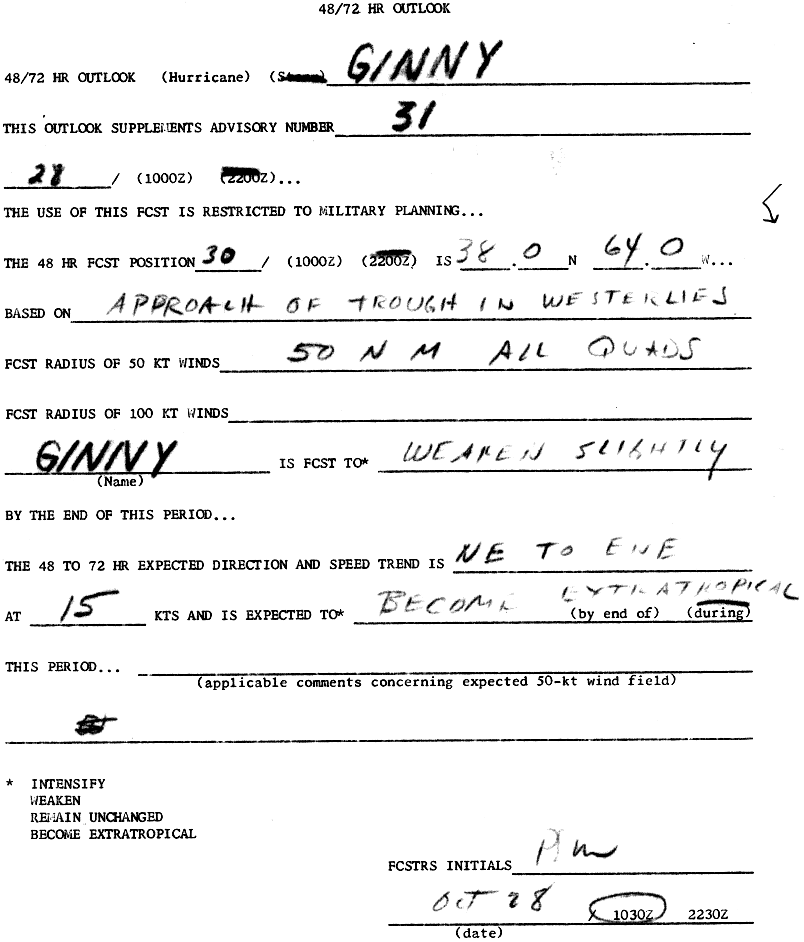 48/72 HR OUTLOOK
48/72 HR OUTLOOK (Hurricane) GINNY
THIS OUTLOOK SUPPLEMENTS ADVISORY NUMBER 31
28 / (1000Z) (2200Z)...
THE USE OF THIS FCST IS RESTRICTED TO MILITARY PLANNING...
THE 48 HR FCST POSITION 30 / (1000Z) (2200Z) IS 38.0 N 64.0 W...
BASED ON APPROACH OF TROUGH IN WESTERLIES
FCST RADIUS OF 50 KT WINDS 50 N M ALL QUADS
FCST RADIUS OF 100 KT WINDS
GINNY IS FCST TO* WEAKEN SLIGHTLY
(Name)
BY THE END OF THIS PERIOD...
THE 48 TO 72 HR EXPECTED DIRECTION AND SPEED TREND IS NE TO ENE
AT 15 KTS AND IS EXPECTED TO* BECOME EXTRATROPICAL
(by end of) (during)
THIS PERIOD...
(applicable comments concerning expected 50-kt wind field)
* INTENSIFY
WEAKEN
REMAIN UNCHANGED
BECOME EXTRATROPICAL
FCSTRS INITIALS
OCT 28 1030Z 2230Z
(date)